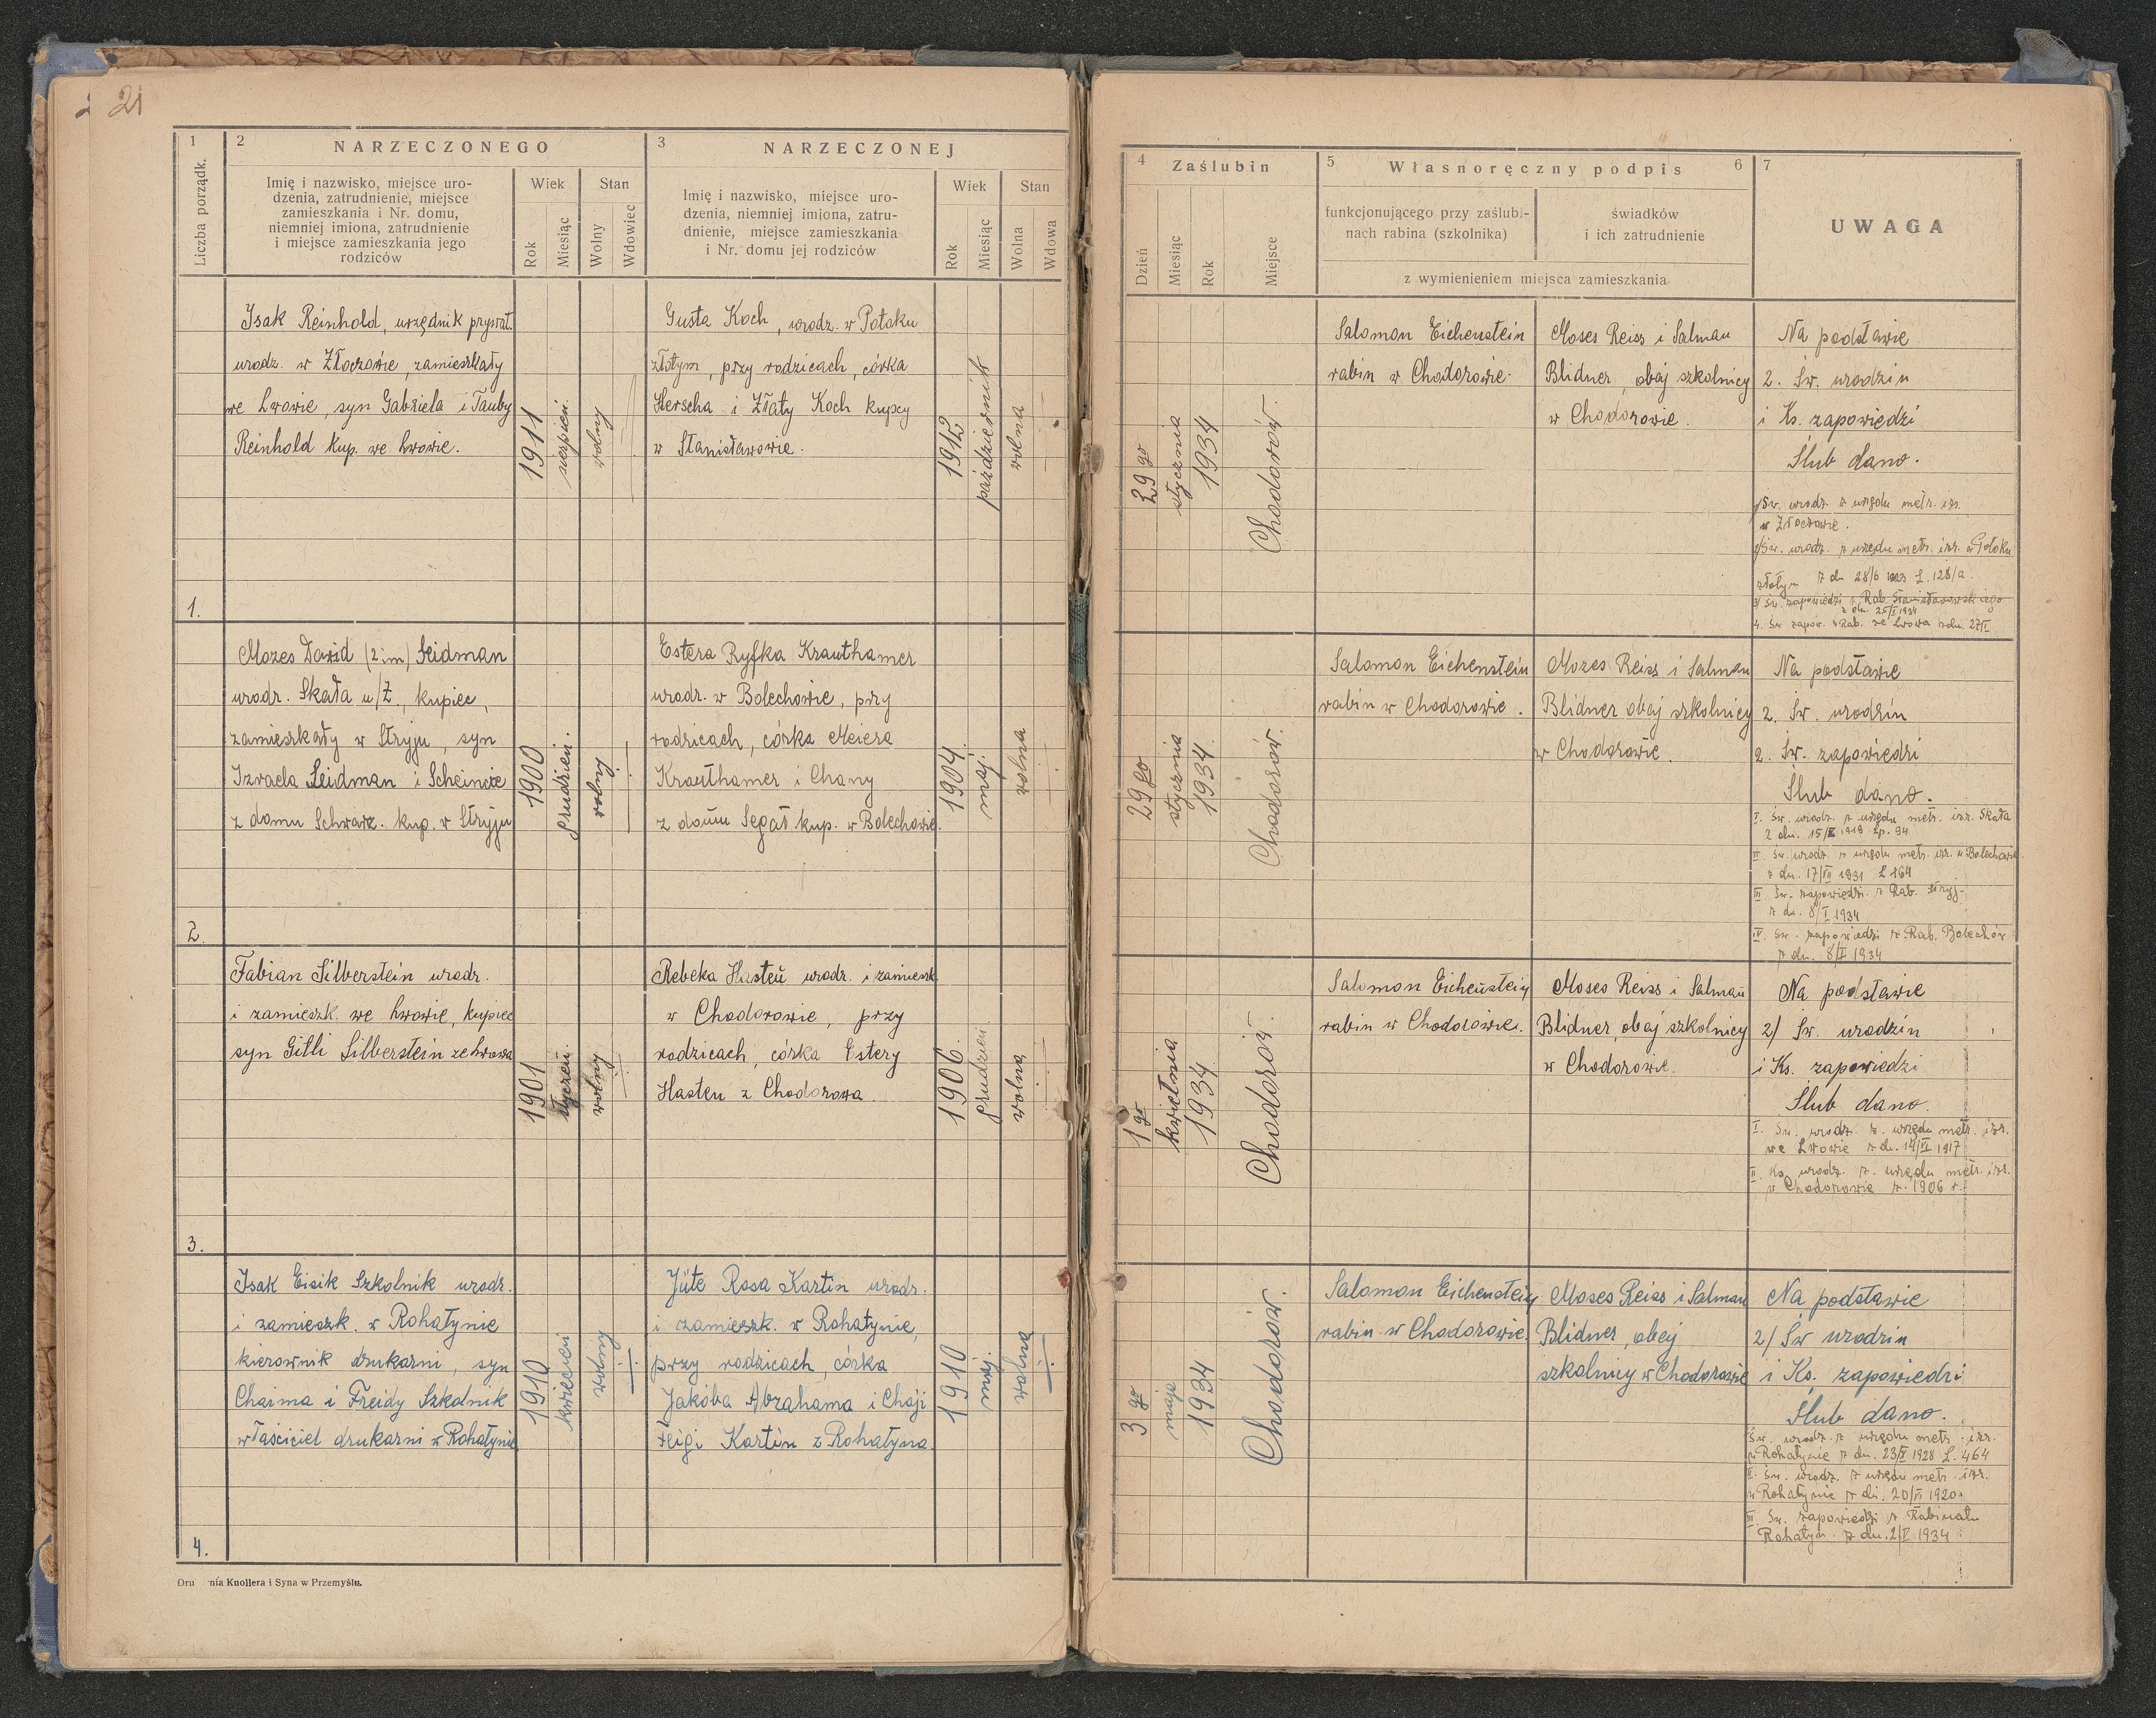 21
1
2
NARZECZONEGO
3
NARZECZONEJ
Liczba porządk.
Imię i nazwisko, miejsce uro-
dzenia, zatrudnienie, miejsce
zamieszkania i Nr. domu,
niemniej imiona, zatrudnienie
i miejsce zamieszkania jego
rodziców
Wiek
Stan
Rok
Miesiąc
Wolny
Wdowiec
Imię i nazwisko, miejsce uro-
dzenia, niemniej imiona, zatru-
dnienie, miejsce zamieszkania
i Nr. domu jej rodziców
Wiek
Stan
Rok
Miesiąc
Wolna
Wdowa
4
Zaślubin
5
Własnoręczny podpis
6
7
Dzień
Miesiąc
Rok
Miejsce
funkcjonującego przy zaślubi-
nach rabina (szkolnika)
świadków
i ich zatrudnienie
z wymienieniem miejsca zamieszkania
UWAGA
1.
Isak Reinhold, urzędnik prywat.
urodz. w Złoczowie, zamieszkały
we Lwowie, syn Gabriela i Tauby
Reinhold kup. we Lwowie.
1911
sierpień.
wolny
Gusta Koch, urodz. w Potoku
złotym, przy rodzicach, córka
Herscha i Złaty Koch kupcy
w Stanisławowie.
1912
październik
wolna
29 go
stycznia
1934
Chodorów.
Salomon Eichenstein
rabin w Chodorowie.
Moses Reiss i Salman
Blidner, obaj szkolnicy
w Chodorowie.
Na podstawie
2. Św. urodzin
i Ks. zapowiedzi
Ślub dano.
1/Św. urodz. z urzędu metr. izr.
w Złoczowie.
2/Św. urodz. z urzędu metr. izr. w Potoku
złotym z dn 28/6 L. 128/a.
3/ Św. zapowiedzi z Rab. Stanisławowskiego
z dn. 25/I 1934
4. Św zapow. z Rab. ze Lwowa z dn. 27/I
2.
Mozes Dawid (2 im) Seidman
urodz. Skała n/Z., kupiec,
zamieszkały w Stryju, syn
Izraela Seidman i Scheincie
z domu Schwarz. kup. w Stryju
1900
grudzień.
wolny
Estera Ryfka Krauthamer
urodz. w Bolechowie, przy
rodzicach, córka Meiera
Krauthamer i Chany
z domu Segał kup. w Bolechowie.
1904.
maj.
wolna
29 go
stycznia
1934.
Chodorów.
Salomon Eichenstein
rabin w Chodorowie.
Mozes Reiss i Salman
Blidner obaj szkolnicy
w Chodorowie.
Na podstawie
2. Św. urodzin
2. Św. zapowiedzi
Ślub dano.
I. Św. urodz. z urzędu metr. izr. Skała
z dn. 15/ 1919 Lp. 94
II. Św. urodz. z urzędu metr. izr. w Bolechowie
z dn. 17/VII 1931 L 164
III. Św. zapowiedzi. z Rab. Stryj.
z dn. 8/I 1934
IV. Św. zapowiedzi z Rab. Bolechów
z dn. 8/I 1934
3.
Fabian Silberstein urodz.
i zamieszk. we Lwowie, kupiec
syn Gitli Silberstein ze Lwowa
1901
styczeń.
wolny
Rebeka Hasten urodz. i zamieszk.
w Chodorowie, przy
rodzicach, córka Estery
Hasten z Chodorowa.
1906.
grudzień
wolna
1 go
kwietnia
1934
Chodorów.
Salomon Eichenstein
rabin w Chodorowie.
Moses Reiss i Salman
Blidner, obaj szkolnicy
w Chodorowie.
Na podstawie
2/ Św. urodzin
i Ks. zapowiedzi
Ślub dano.
I. Św. urodz. z. urzędu metr. izr.
we Lwowie z dn. 14/VI 1917
II Ks. urodz. z. urzędu metr. izr.
w Chodorowie z. 1906 r.
4.
Isak Eisik Szkolnik urodz.
i zamieszk. w Rohatynie
kierownik drukarni, syn
Chaima i Freidy Szkolnik
właściciel drukarni w Rohatynie
1910
kwiecień
wolny
Jüte Rosa Kartin urodz.
i zamieszk. w Rohatynie,
przy rodzicach, córka
Jakóba Abrahama i Chaji
Feigi Kartin z Rohatyna.
1910
maj.
wolna
3 go
maja
1934
Chodorów.
Salomon Eichenstein
rabin w Chodorowie.
Moses Reiss i Salman
Blidner, obaj
szkolnicy w Chodorowie
Na podstawie
2/ Św urodzin
i Ks. zapowiedzi
Ślub dano.
Św. urodz. z urzędu metr. izr.
w Rohatynie z dn. 23/ 1928 L. 464
Św. urodz. z urzędu metr. izr.
w Rohatynie z dn. 20/ 1920.
III. Św. zapowiedzi z Rabinatu
Rohatyn. z dn. 2/V 1934
nia Knollera i Syna w Przemyślu.